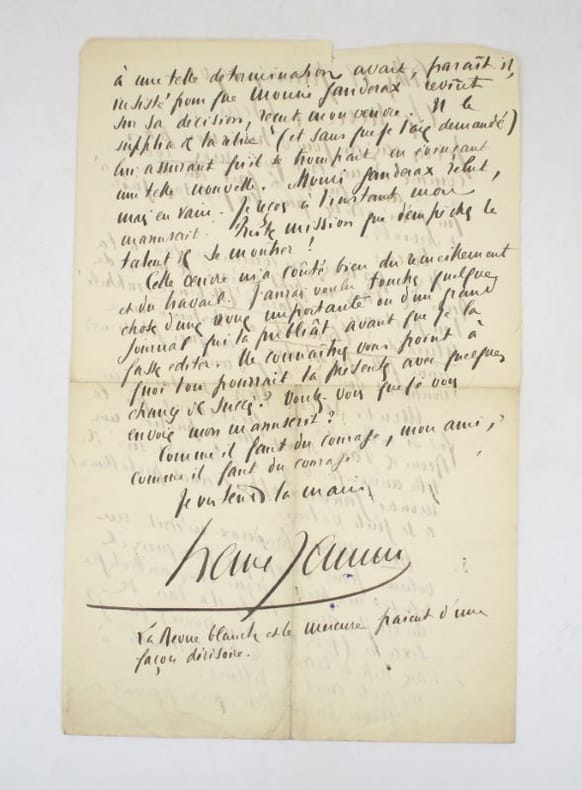 à une telle determination avait, paraît il,
insisté pour que Monsieur Ganderax revînt
sur sa décision, relut mon œuvre. Il le
supplia de la relire (et sans que je l'aie demandé)
lui assurant qu'il se trompait en évinçant
une telle nouvelle. Monsieur Ganderax relut,
mais en vain. Je reçois à l'instant mon
manuscrit. Triste mission que d'empêcher le
talent de se montrer !
Cette œuvre m'a coûté bien du recueillement
et du travail. J'aurais voulu toucher quelque
chose d'une revue importante ou d'un grand
Journal qui la publiât avant que je la
fasse editer. Ne connaîtriez vous point à
quoi l'on pourrait la présenter avec quelques
chances de succès ? Voulez-vous que je vous
envoie mon manuscrit ?
Comme il faut du courage, mon ami,
comme il faut du courage
Je vous tends la main,
La Revue blanche et le Mercure paient d'une
façon dérisoire.